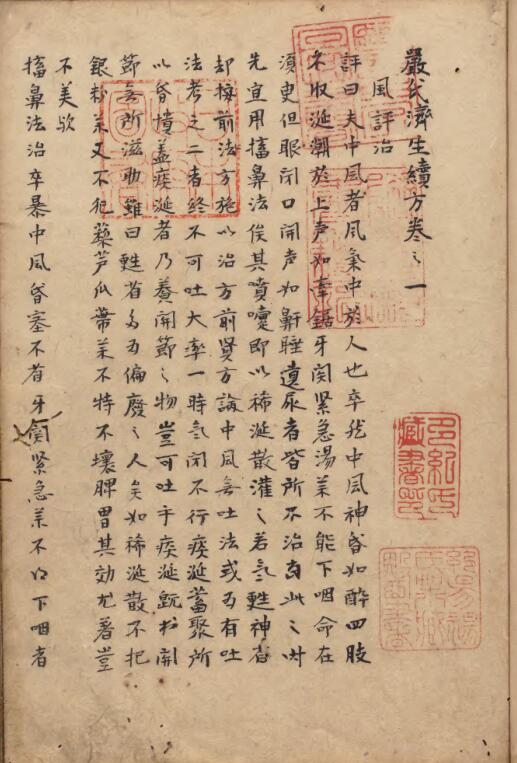 嚴氏濟生續方卷之一
風評治
評曰夫中風者風氣中於人也卒然中風神昏如醉四肢
不收涎潮於上声如牽鋸牙関緊急湯藥不能下咽命在
須臾但眼闭口開声如鼾睡遺尿者皆所不治當此之时
先宜用搐鼻法俟其噴嚏即以稀涎散灌之若氣甦神省
却按前法方施以治方前賢方論中風無吐法或有吐
法考之二者終不可吐大率一時氣闭不行痰涎蓄聚所
以昏憒盖痰涎者乃養関節之物豈可吐乎痰涎既出関
節無所滋助雖曰甦省多為偏廢之人矣如稀涎散不犯
銀粉藥又不犯藜芦瓜蒂藥不特不壞脾胃其効尤著豈
不美欤
搐鼻法治卒暴中風昏塞不省牙関緊急藥不得下咽者